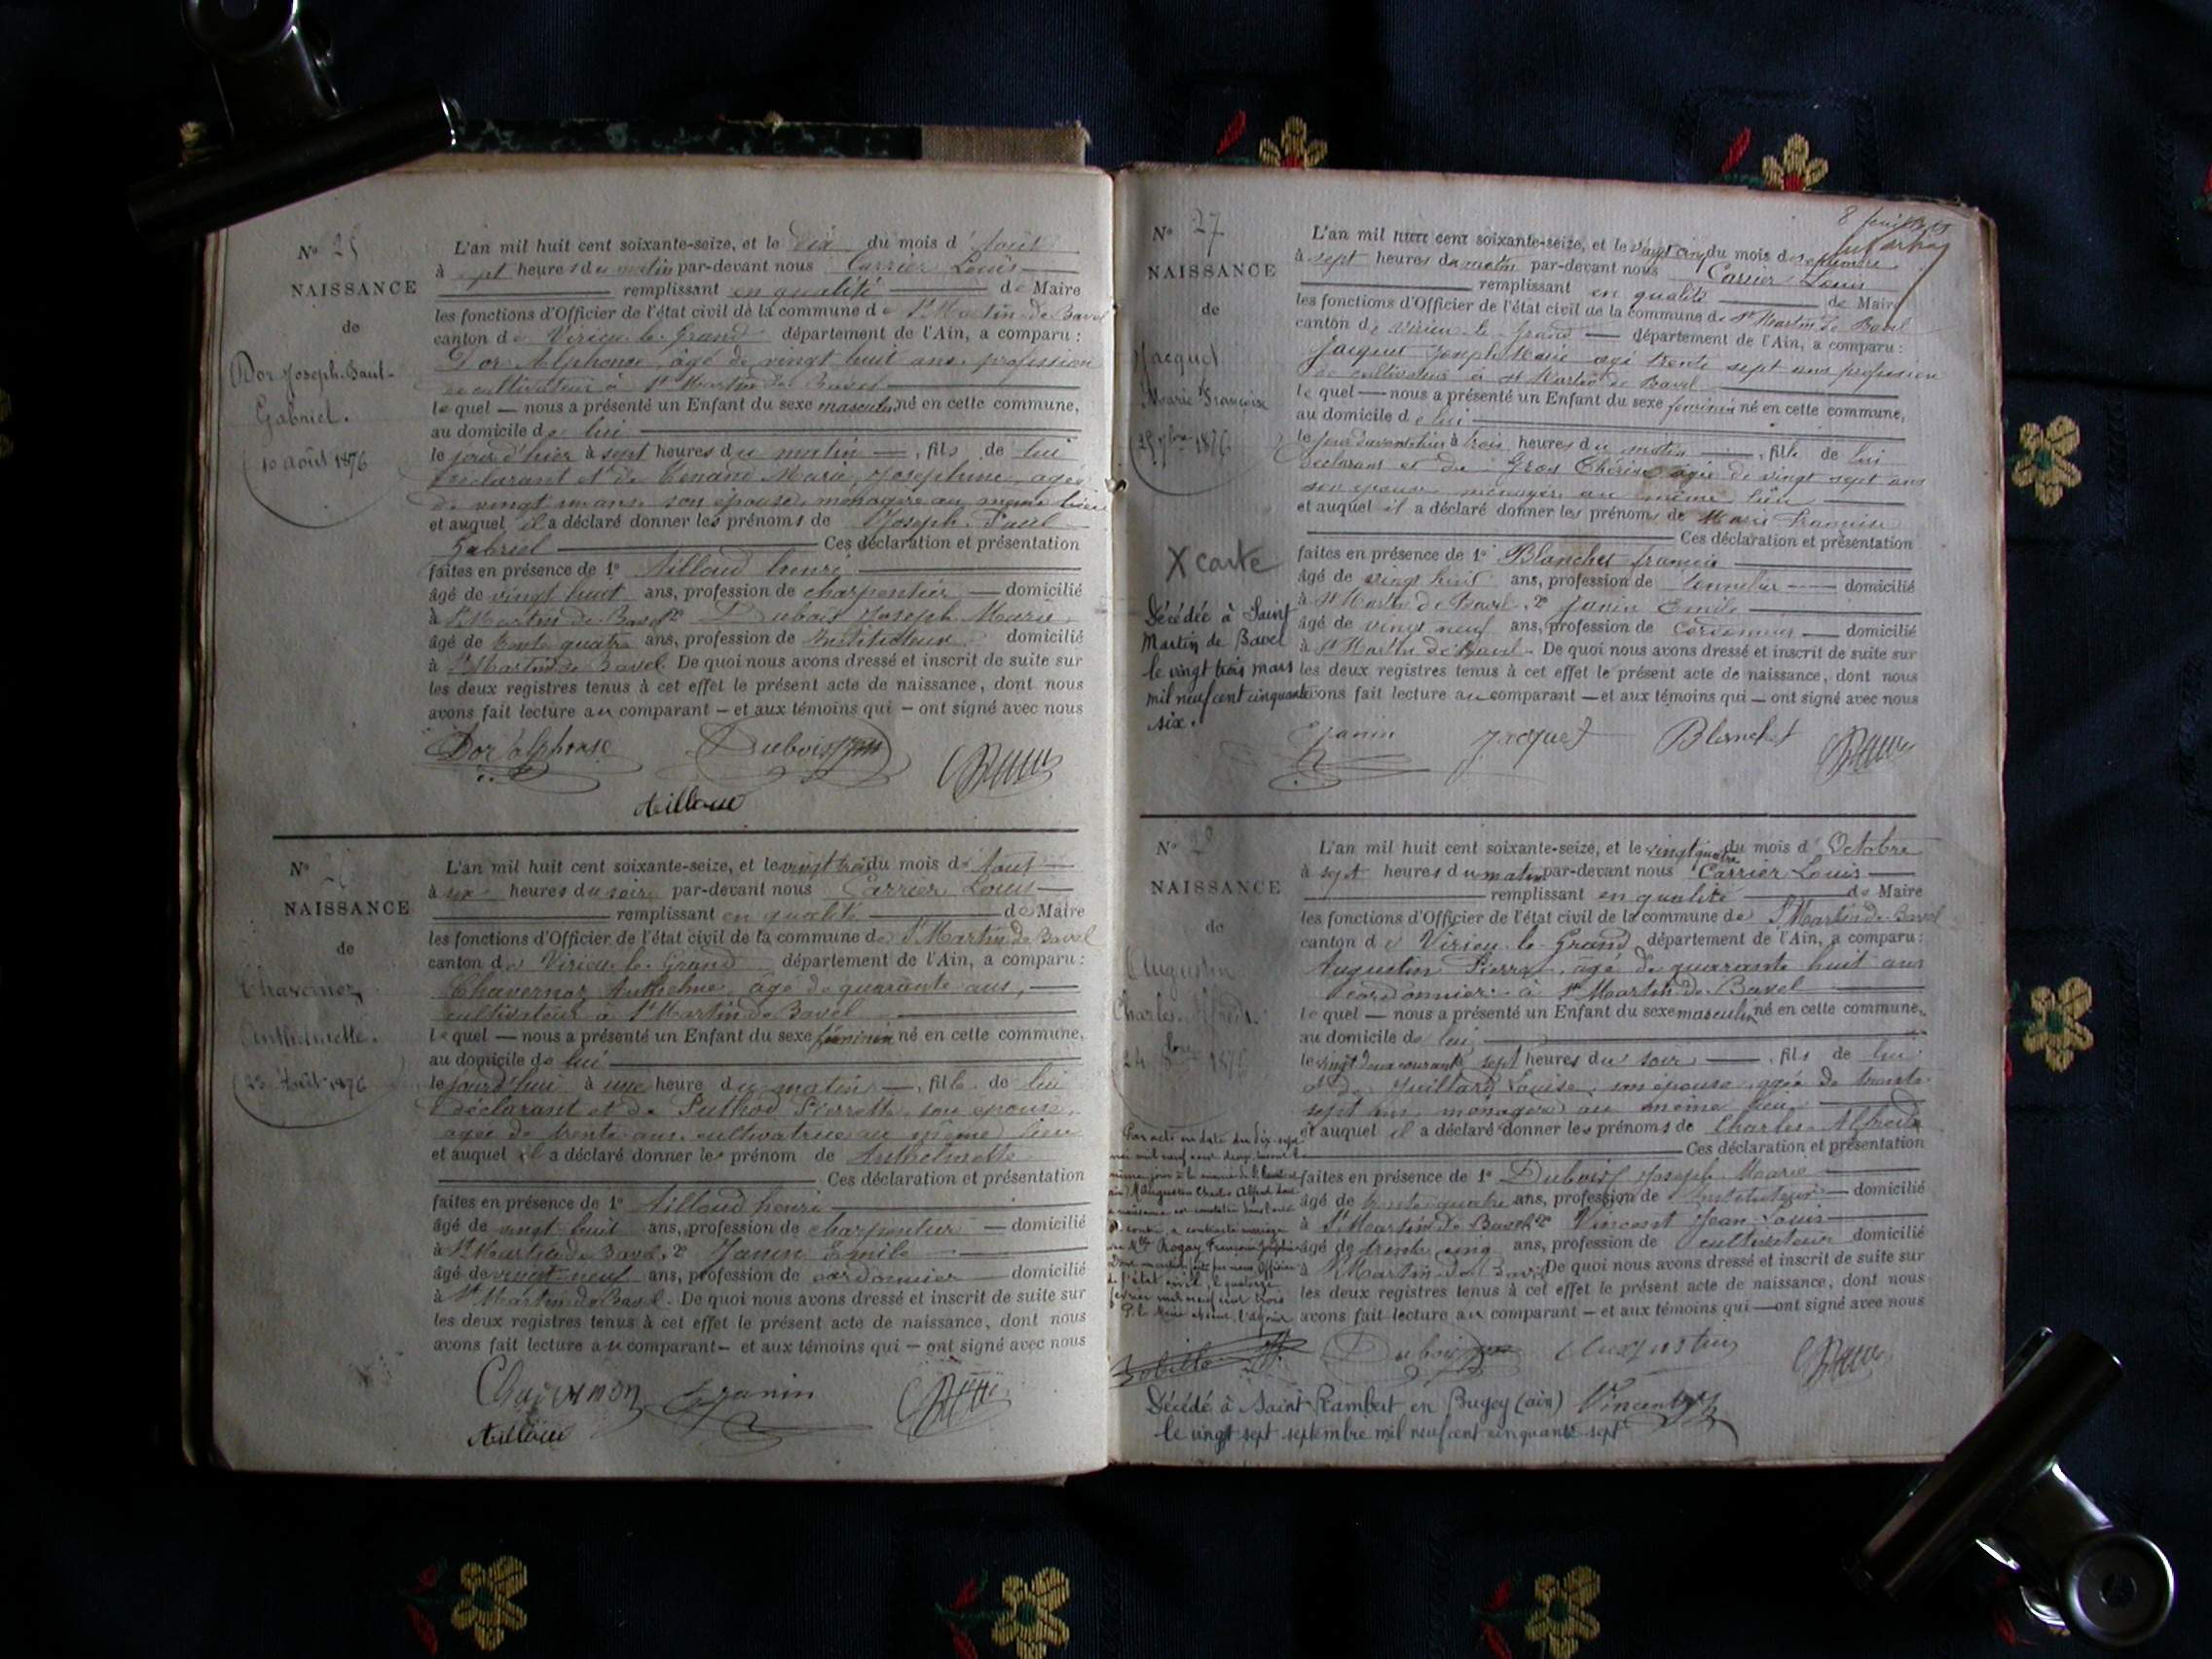 N° 25
NAISSANCE
de
Dor Joseph-Paul-
Gabriel.
10 août 1876
L'an mil huit cent soixante-seize, et le dix du mois d'Août
à sept heures du matin par-devant nous Carrier Louis
remplissant en qualité de Maire
les fonctions d'Officier de l'état civil de la commune de St Martin de Bavel
canton de Virieu-le-Grand département de l'Ain, a comparu :
Dor Alphonse, âgé de vingt huit ans, profession
de cultivateur à St Martin de Bavel
lequel — nous a présenté un Enfant du sexe masculin né en cette commune,
au domicile de lui
le jour d'hier à sept heures du matin —, fils de lui
déclarant et de Marie Josephine, agée
de vingt ans, son épouse, ménagère au même lieu
et auquel il a déclaré donner les prénoms de Joseph Paul
Gabriel Ces déclaration et présentation
faites en présence de 1° Ailloud henri
âgé de vingt huit ans, profession de charpentier — domicilié
à St Martin de Bavel 2° Dubois Joseph Marie
âgé de trente quatre ans, profession de Instituteur domicilié
à St Martin de Bavel. De quoi nous avons dressé et inscrit de suite sur
les deux registres tenus à cet effet le présent acte de naissance, dont nous
avons fait lecture au comparant — et aux témoins qui — ont signé avec nous
Dor alphonse Dubois
Ailloud
N° 26
NAISSANCE
de
Chavernoz
Anthelmette.
23 Août 1876
L'an mil huit cent soixante-seize, et le vingt trois du mois d'Août
à six heures du soir par-devant nous Carrier Louis
remplissant en qualité de Maire
les fonctions d'Officier de l'état civil de la commune de St Martin de Bavel
canton de Virieu-le-Grand département de l'Ain, a comparu :
Chavernoz Anthelme, agé de quarante ans,
cultivateur à St Martin de Bavel
lequel — nous a présenté un Enfant du sexe féminin né en cette commune,
au domicile de lui
le jourd'hui à une heure du matin —, fille de lui
déclarant et de Puthod Pierrette, son épouse,
agée de trente ans, cultivatrice au même lieu
et auquel il a déclaré donner le prénom de Anthelmette
Ces déclaration et présentation
faites en présence de 1° Ailloud henri
âgé de vingt huit ans, profession de charpentier — domicilié
à St Martin de Bavel, 2° Janin Emile
âgé de vingt-neuf ans, profession de cordonnier domicilié
à St Martin de Bavel. De quoi nous avons dressé et inscrit de suite sur
les deux registres tenus à cet effet le présent acte de naissance, dont nous
avons fait lecture au comparant — et aux témoins qui — ont signé avec nous
Chavernoz Janin
Ailloud
N° 27
NAISSANCE
de
Jacquet
Marie Françoise
25 7bre 1876
X carte
Décédée à Saint
Martin de Bavel
le vingt trois mars
mil neuf cent cinquante
six.
L'an mil huit cent soixante-seize, et le vingt cinq du mois de septembre
à sept heures du matin par-devant nous Carrier Louis
remplissant en qualité de Maire
les fonctions d'Officier de l'état civil de la commune de St Martin de Bavel
canton de Virieu-le-Grand — département de l'Ain, a comparu :
Jacquet Joseph Marie agé trente sept ans profession
de cultivateur à St Martin de Bavel
lequel — nous a présenté un Enfant du sexe féminin né en cette commune,
au domicile de lui
le jour d'avant hier à trois heures du matin —, fille de lui
déclarant et de Gros Thérèse agée de vingt sept ans
son épouse ménagère au même lieu
et auquel il a déclaré donner les prénoms de Marie Françoise
Ces déclaration et présentation
faites en présence de 1° Blanchet francis
âgé de vingt huit ans, profession de tonnelier — domicilié
à St Martin de Bavel, 2° Janin Emile
âgé de vingt neuf ans, profession de cordonnier — domicilié
à St Martin de Bavel - De quoi nous avons dressé et inscrit de suite sur
les deux registres tenus à cet effet le présent acte de naissance, dont nous
avons fait lecture au comparant — et aux témoins qui — ont signé avec nous
Janin Jacquet Blanchet
N° 28
NAISSANCE
de
Augustin
Charles-Alfred.
24 8bre 1876
L'an mil huit cent soixante-seize, et le vingt quatre du mois d'Octobre
à sept heures du matin par-devant nous Carrier Louis
remplissant en qualité de Maire
les fonctions d'Officier de l'état civil de la commune de St Martin de Bavel
canton de Virieu-le-Grand département de l'Ain, a comparu :
Augustin Pierre, âgé de quarante huit ans
cordonnier à St Martin de Bavel
lequel — nous a présenté un Enfant du sexe masculin né en cette commune,
au domicile de lui
le vingt deux courant à sept heures du soir —, fils de lui
et de Juillard Louise, son épouse, agée de trente
sept ans, ménagère au même lieu
et auquel il a déclaré donner les prénoms de Charles-Alfred
Ces déclaration et présentation
faites en présence de 1° Dubois Joseph Marie
âgé de trente quatre ans, profession de Instituteur — domicilié
à St Martin de Bavel 2° Vincent Jean Louis
âgé de trente cinq ans, profession de cultivateur domicilié
à St Martin de Bavel De quoi nous avons dressé et inscrit de suite sur
les deux registres tenus à cet effet le présent acte de naissance, dont nous
avons fait lecture au comparant — et aux témoins qui — ont signé avec nous
Dubois Augustin
Vincent
Décédé à Saint Rambert en Bugey (ain)
le vingt sept septembre mil neuf cent cinquante sept